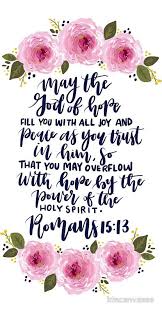 may the
God of hope
FILL YOU WITH ALL JOY AND
Peace as you trust
in him, so
THAT YOU MAY OVERFLOW
With hope by the
power of the
HOLY SPIRIT.
Romans 15:13